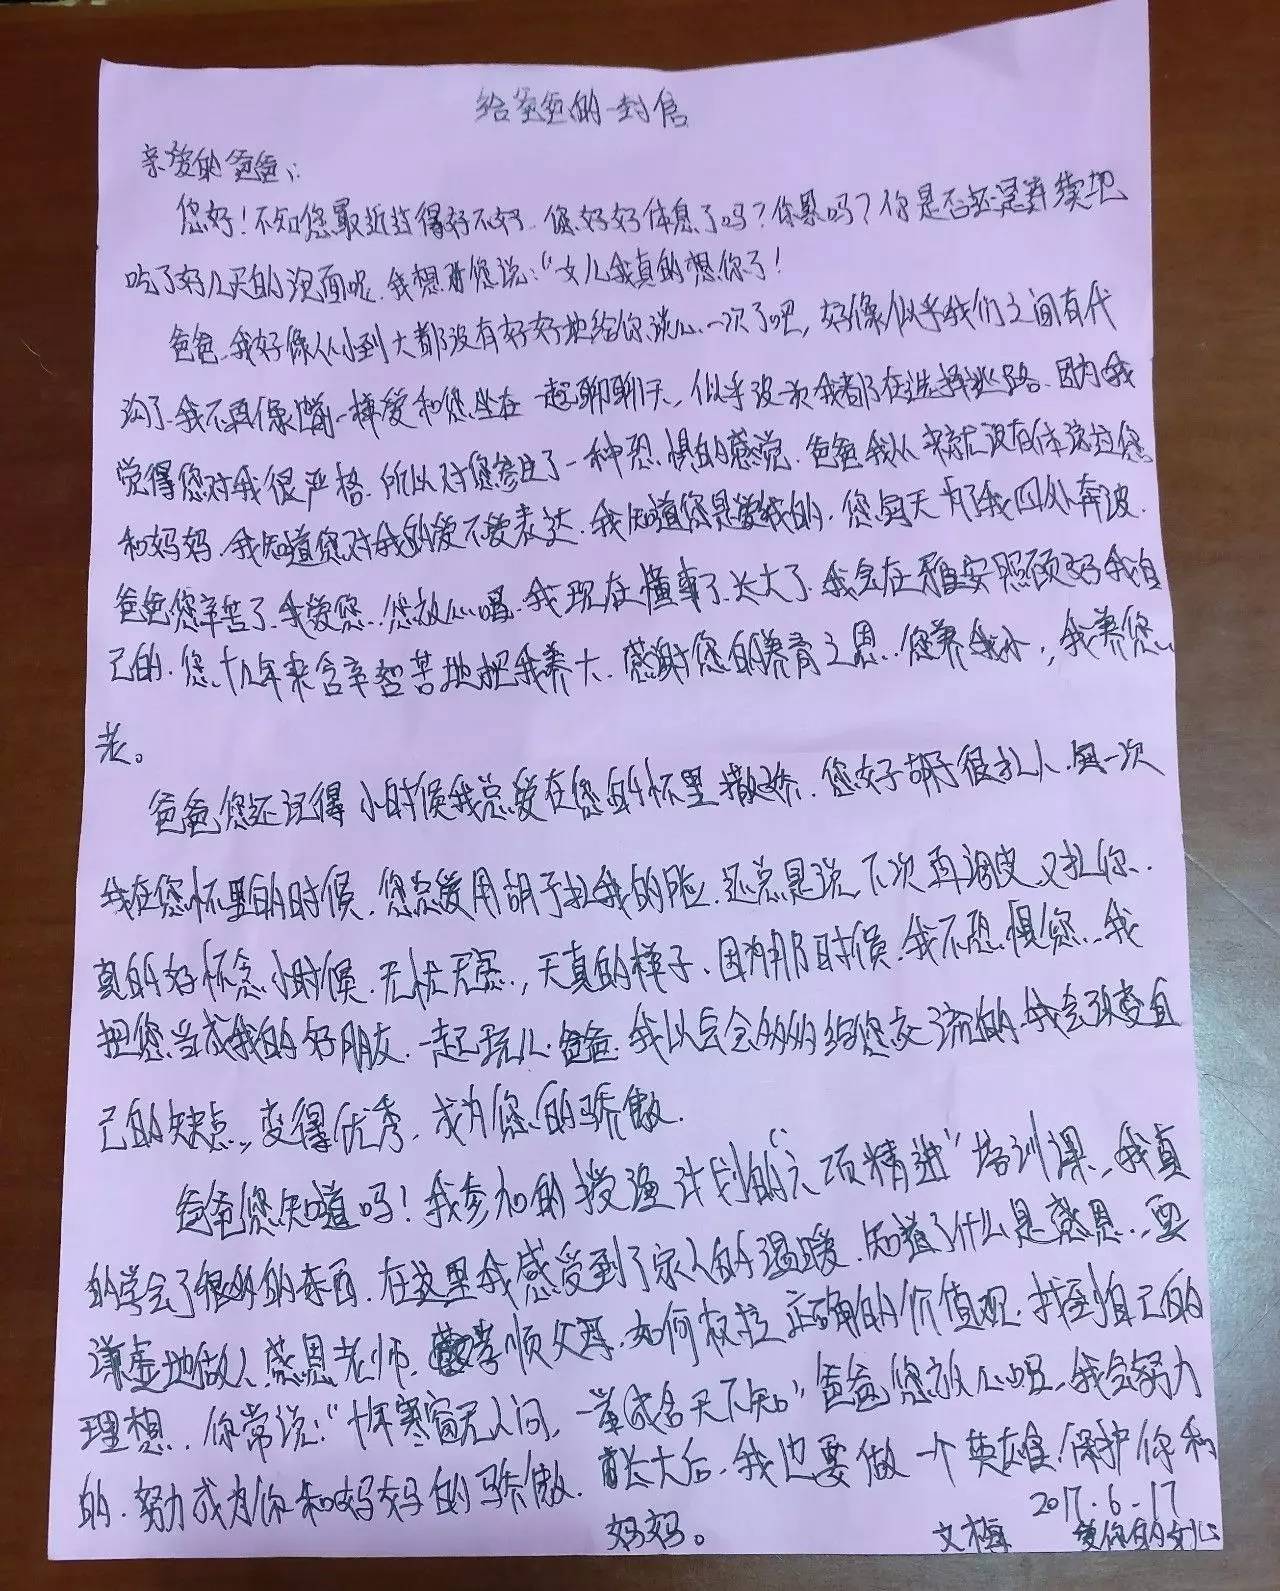 给爸爸的一封信
亲爱的爸爸：
您好！不知您最近过得好不好，您好好休息了吗？你累吗？你是否还是连续地
吃了好几天的泡面呢，我想对您说：“女儿我真的想你了！
爸爸，我好像从小到大都没有好好地给你谈心一次了吧，好像似乎我们之间有代
沟了，我不再像以前一样爱和您坐在一起聊聊天，似乎每一次我都在选择逃路，因为我
觉得您对我很严格，所以对您产生了一种恐惧的感觉，爸爸我从来就没有体谅过您
和妈妈，我知道您对我的爱不爱表达，我知道您是爱我的，您每天为了我四处奔波，
爸爸您辛苦了，我爱您，您放心吧，我现在懂事了，长大了，我会在雅安照顾好我自
己的，您十几年来含辛茹苦地把我养大，感谢您的养育之恩，您养我小，我养您
老。
爸爸您还记得小时候我总爱在您的怀里撒娇，您好胡子很扎人，每一次
我在您怀里的时候，您总爱用胡子扎我的脸，还总是说，下次再调皮，又扎你，
真的好怀念小时候，无忧无虑，天真的样子，因为那时候，我不恐惧您，我
把您当成我的好朋友，一起玩儿，爸爸，我以后会多多给您交流的，我会改变自
己的缺点，变得优秀，成为您的骄傲.
爸爸您知道吗！我参加的授渔计划的“六项精进”培训课，我真
的学会了很多的东西，在这里我感受到了家人的温暖，知道了什么是感恩，要
谦虚地做人，感恩老师，孝顺父母，如何树立正确的价值观，找到自己的
理想，你常说：“十年寒窗无人问，一举成名天下知”爸爸您放心吧，我会努力
的，努力成为你和妈妈的骄傲，长大后，我也要做一个英雄，保护你和
妈妈。
2017.6-17
文梅 爱你的女儿